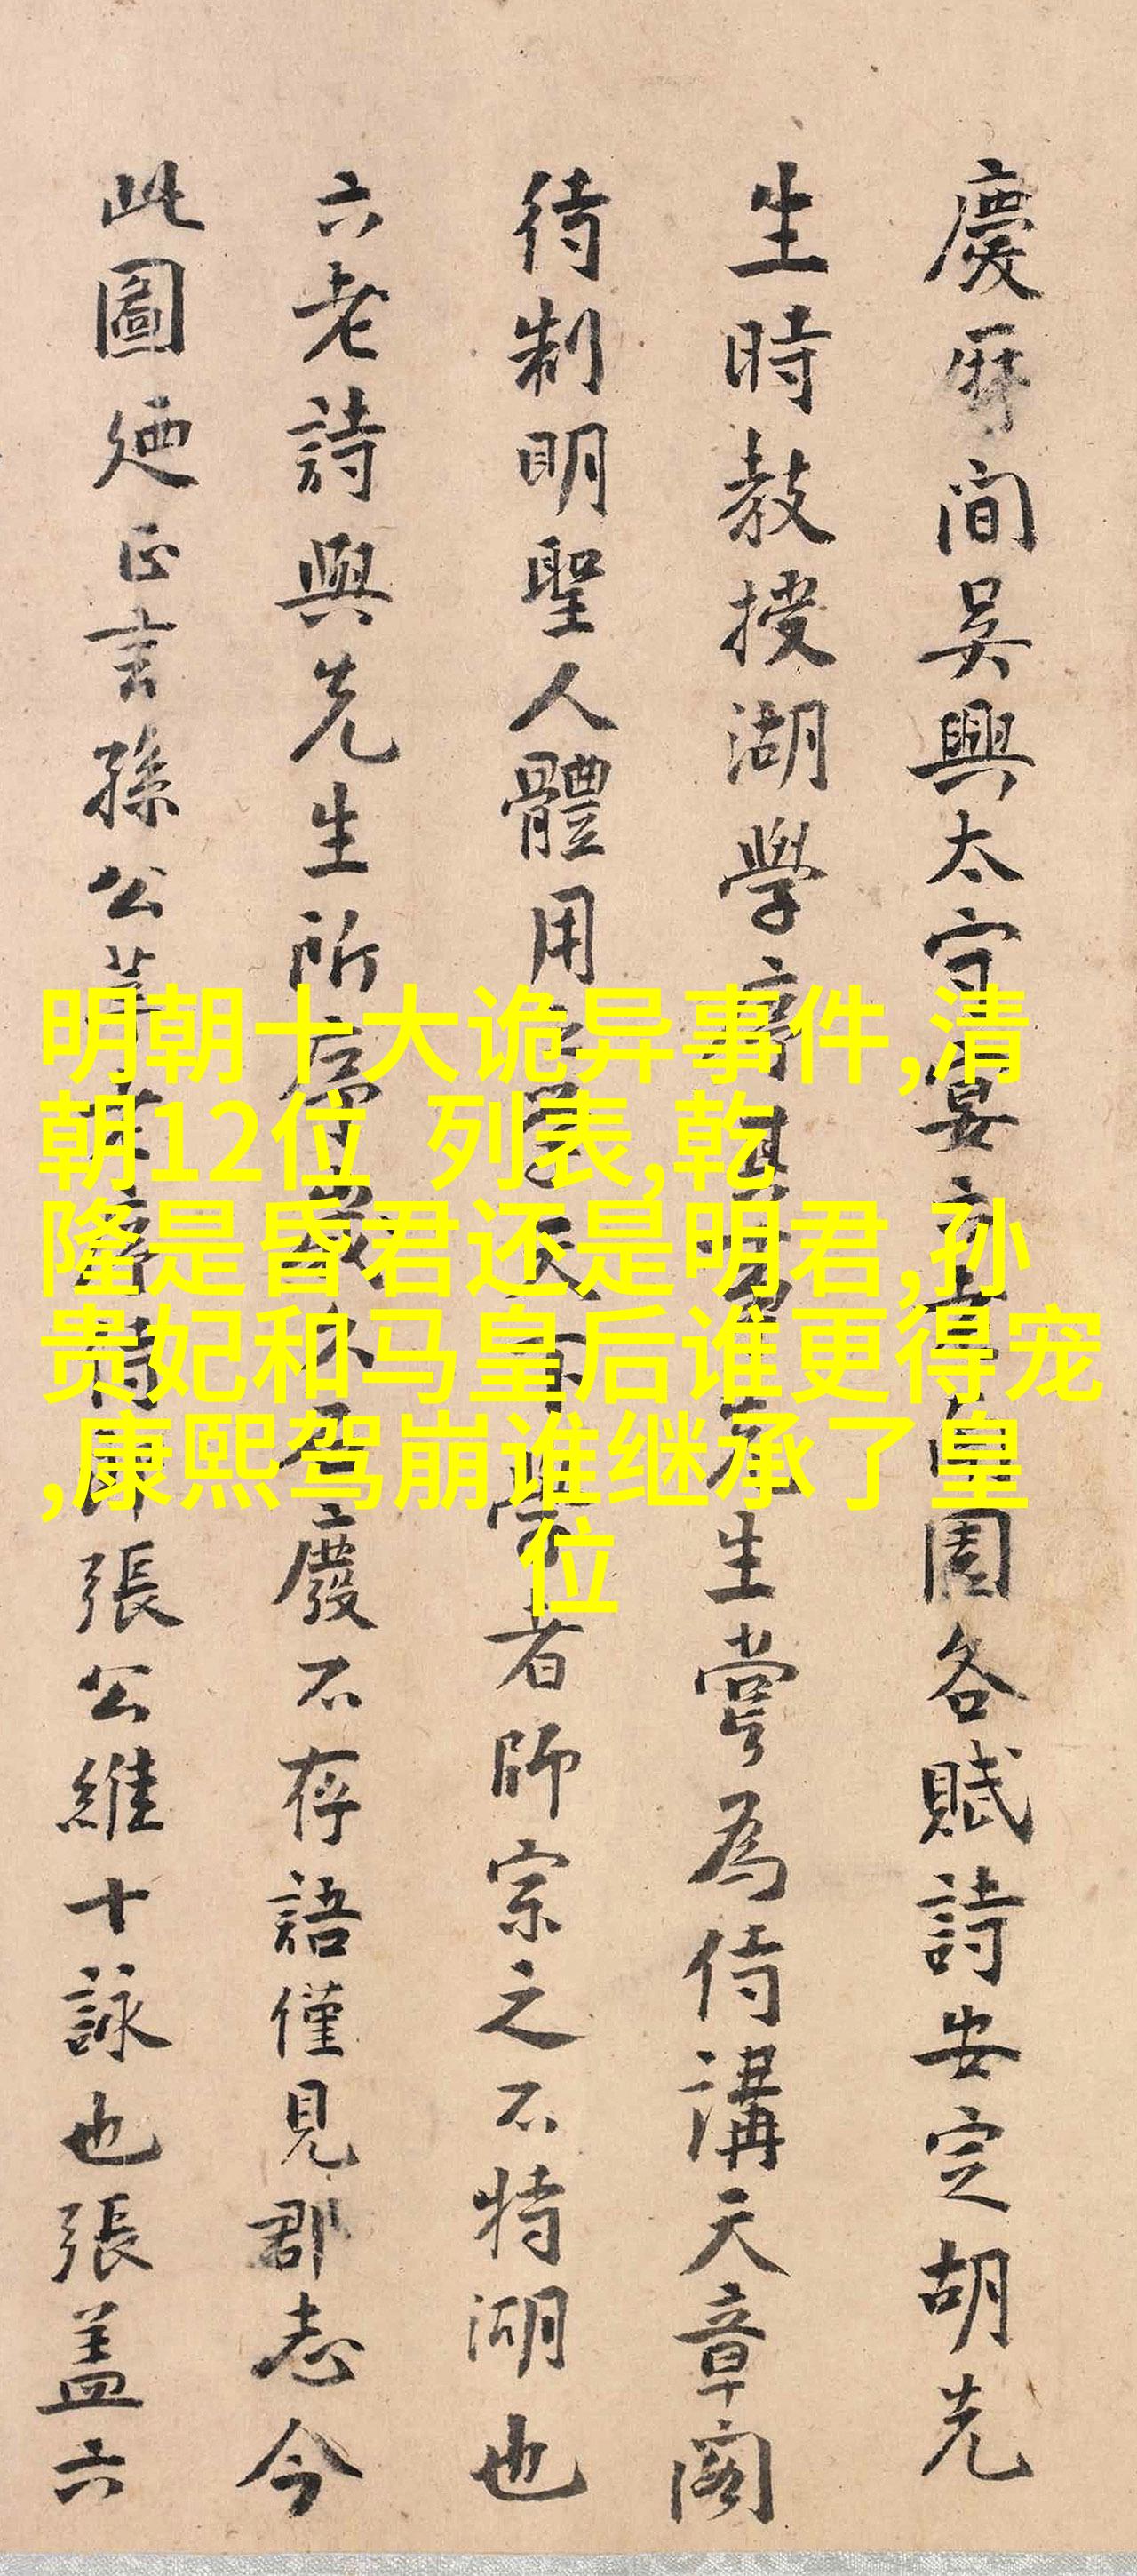 慶厤間吳興太守宴六園各賦詩安定胡先
生時教授湖學序其生嘗為侍講天章閣
待制明聖人體用學者師宗之不特湖也
六老詩與先生所序歲久石廢不存語僅見郡志今
此圖廼正言孫公詩即張公維十詠也張蓋六
明朝十大诡异事件,清
朝12位 列表,乾
隆是昏君还是明君,孙
贵妃和马皇后谁更得宠
,康熙驾崩谁继承了皇
位